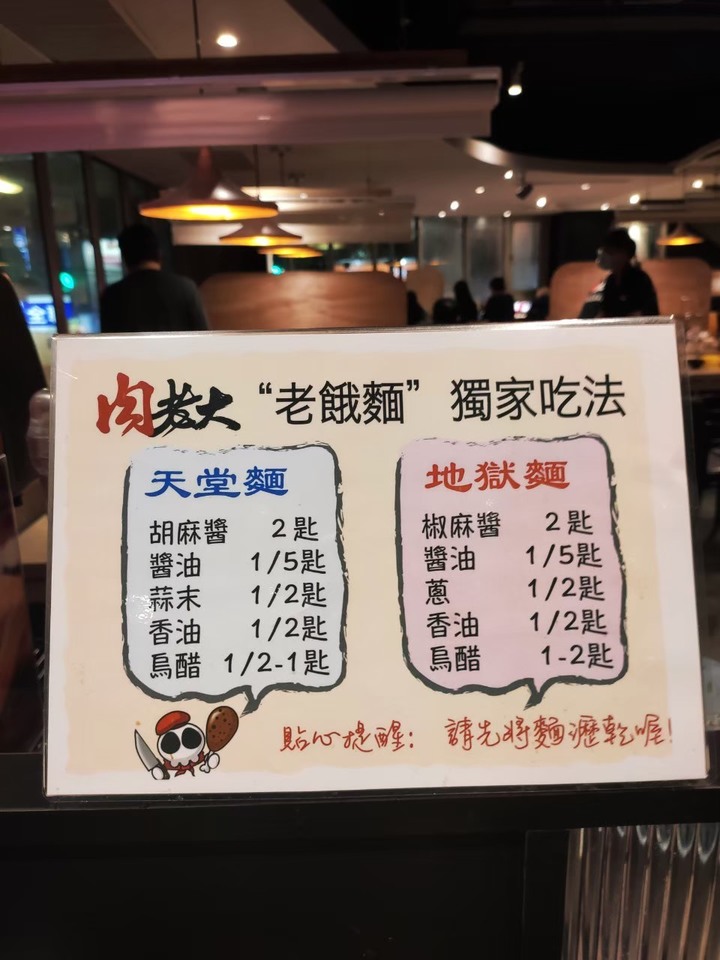 肉老大 “老餓麵” 獨家吃法
天堂麵
胡麻醬 2匙
醬油 1/5匙
蒜末 1/2匙
香油 1/2匙
烏醋 1/2-1匙
地獄麵
椒麻醬 2匙
醬油 1/5匙
蔥 1/2匙
香油 1/2匙
烏醋 1-2匙
貼心提醒： 請先將麵瀝乾喔！